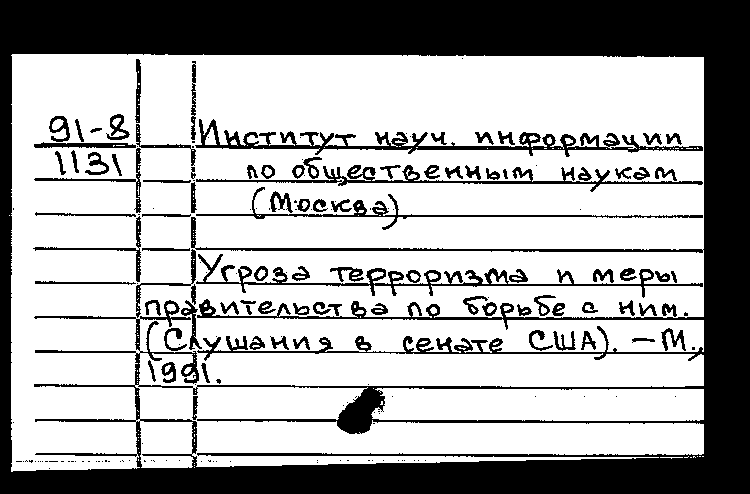 91-8
1131
Институт науч. информации
по общественным наукам
(Москва).
Угроза терроризма и меры
правительства по борьбе с ним.
(Слушания в сенате США). – М.,
1991.